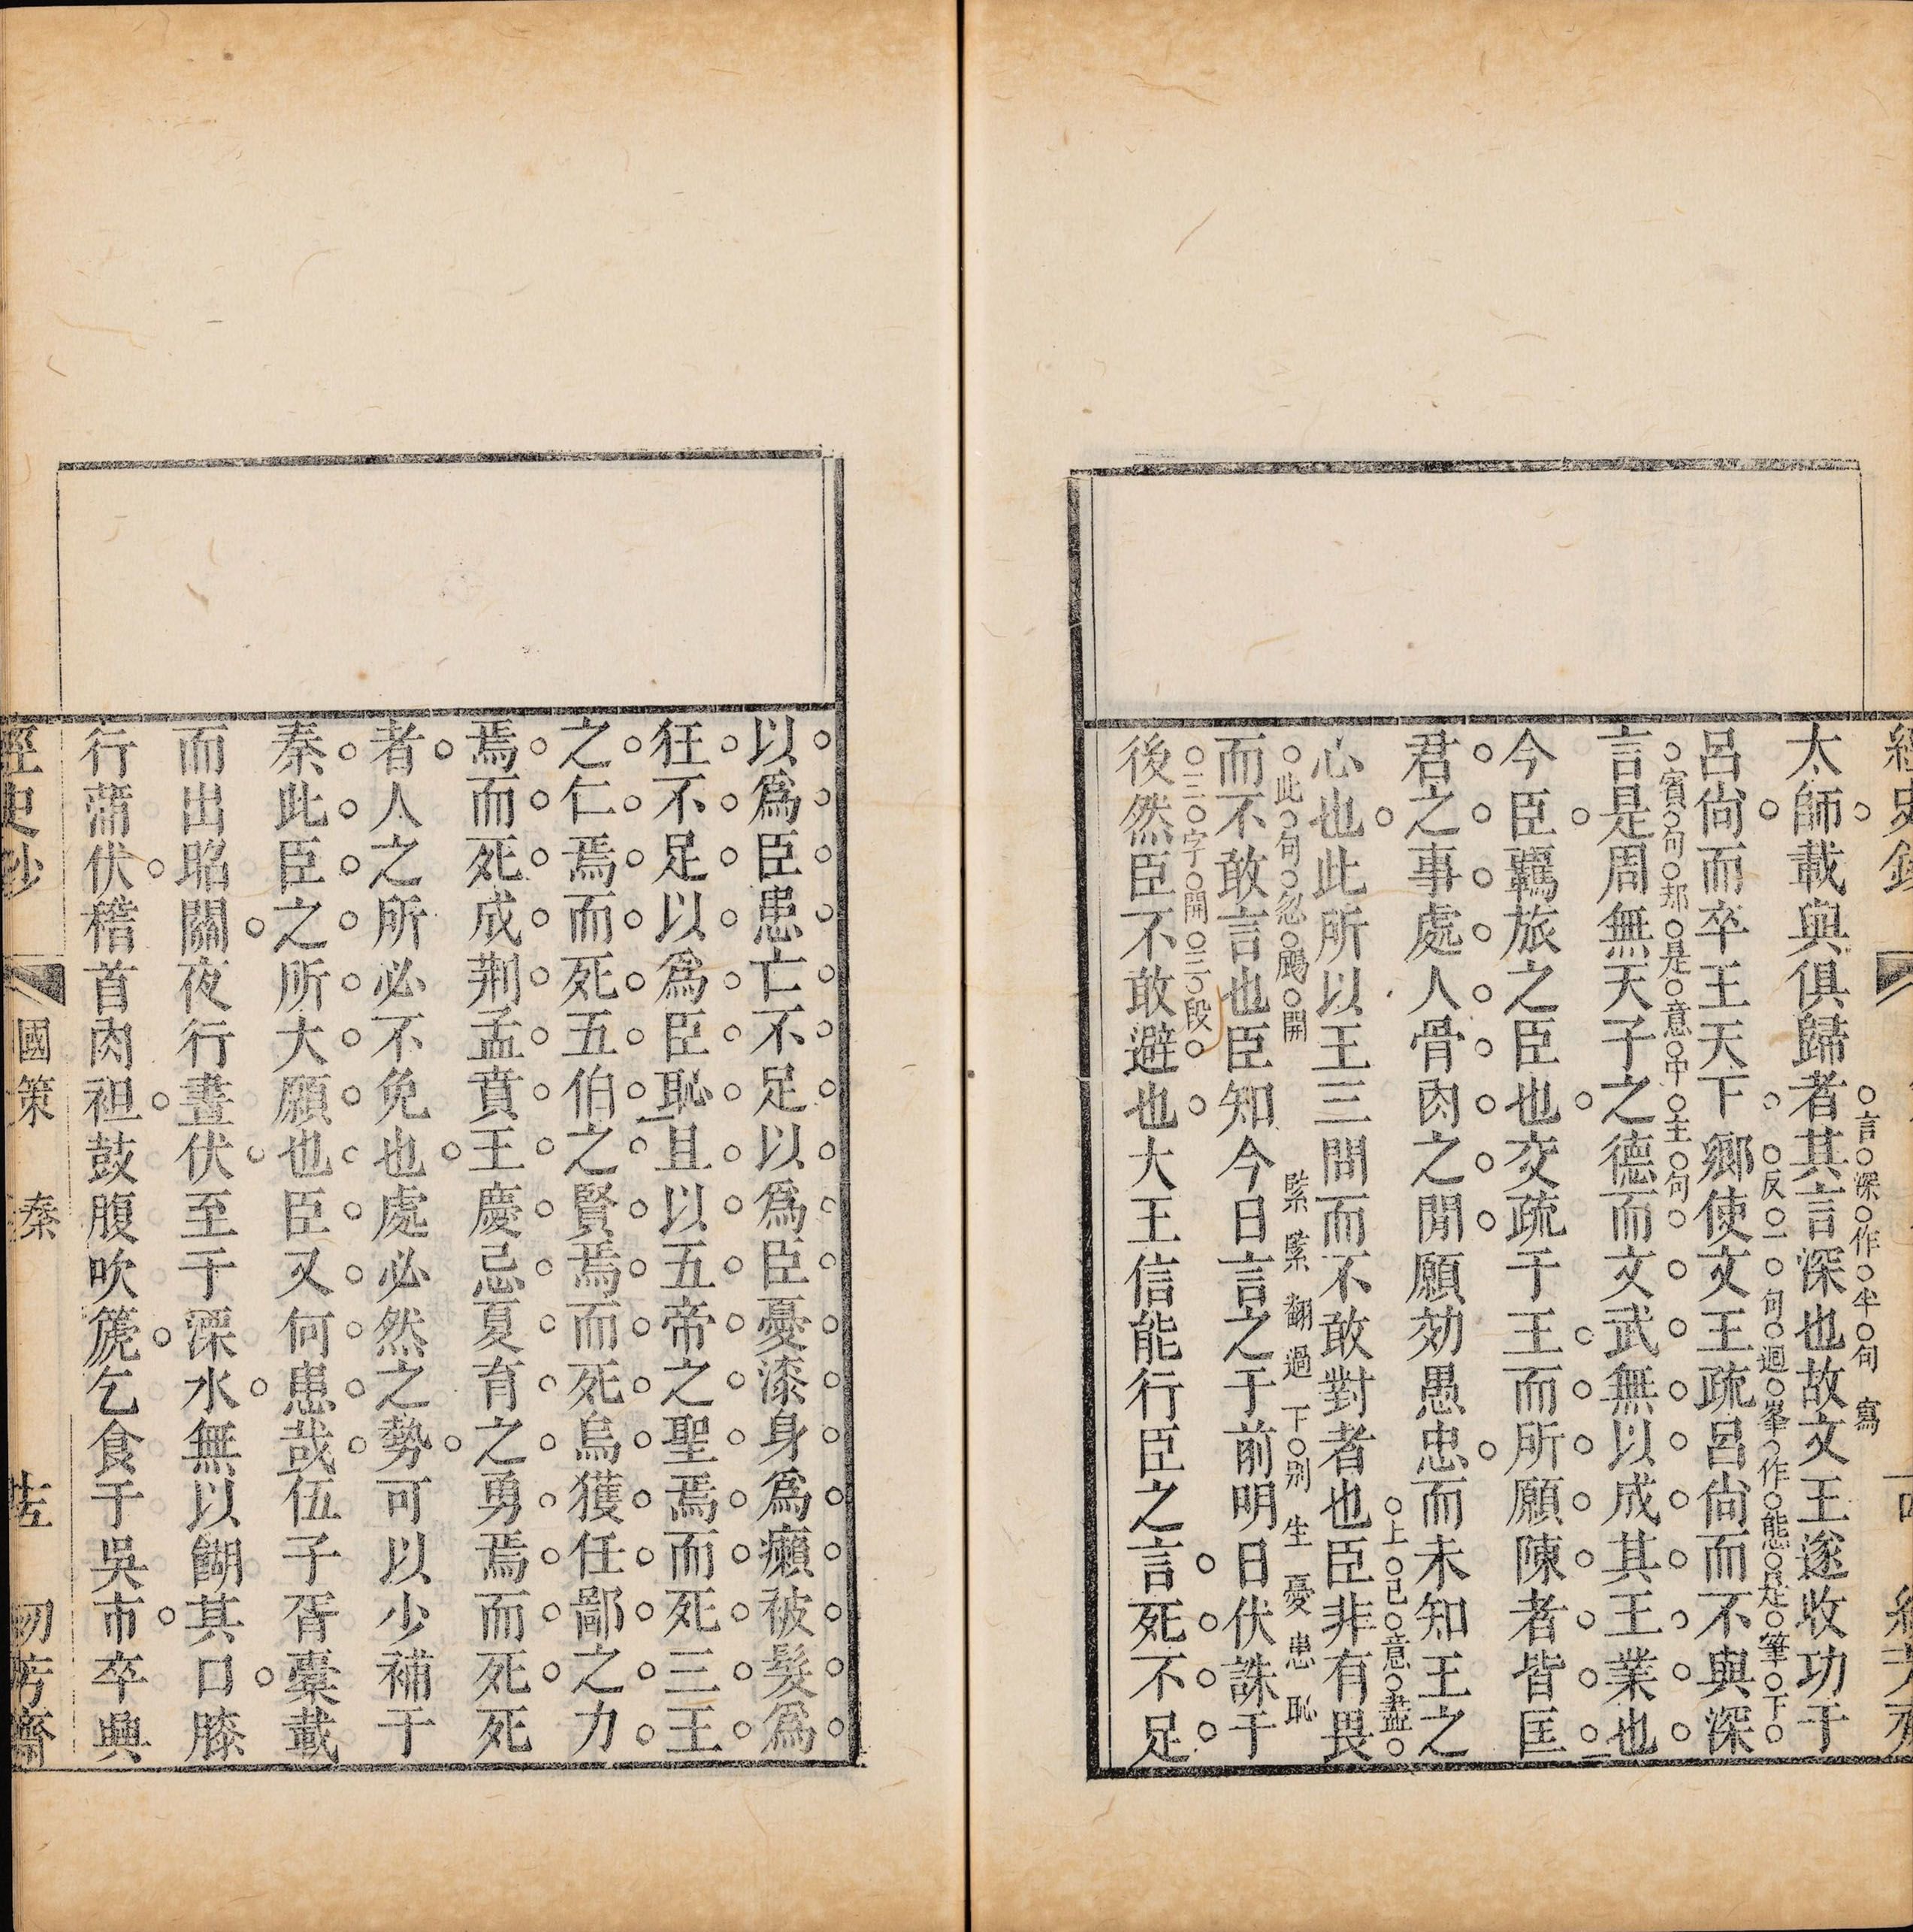 太師載與俱歸者其言深也故文王遂收功于
言深作半句 寫
呂尙而卒王天下鄉使文王疏呂尙而不與深
反一句迴峯作態是筆下
言是周無天子之德而文武無以成其王業也
賓句却是意中主句
今臣羈旅之臣也交疏于王而所願陳者皆匡
君之事處人骨肉之閒願効愚忠而未知王之
心也此所以王三問而不敢對者也臣非有畏
上已意盡
而不敢言也臣知今日言之于前明日伏誅于
此句忽颺開 緊緊翻過下別生憂患恥
後然臣不敢避也大王信能行臣之言死不足
三字開三段
以爲臣患亡不足以爲臣憂漆身爲癩被髮爲
狂不足以爲臣恥且以五帝之聖焉而死三王
之仁焉而死五伯之賢焉而死烏獲任鄙之力
焉而死成荆孟賁王慶忌夏育之勇焉而死死
者人之所必不免也處必然之勢可以少補于
秦此臣之所大願也臣又何患哉伍子胥橐載
而出昭關夜行晝伏至于溧水無以餬其口膝
行蒲伏稽首肉袒鼓腹吹篪乞食于吳市卒興
經史鈔 國策 秦